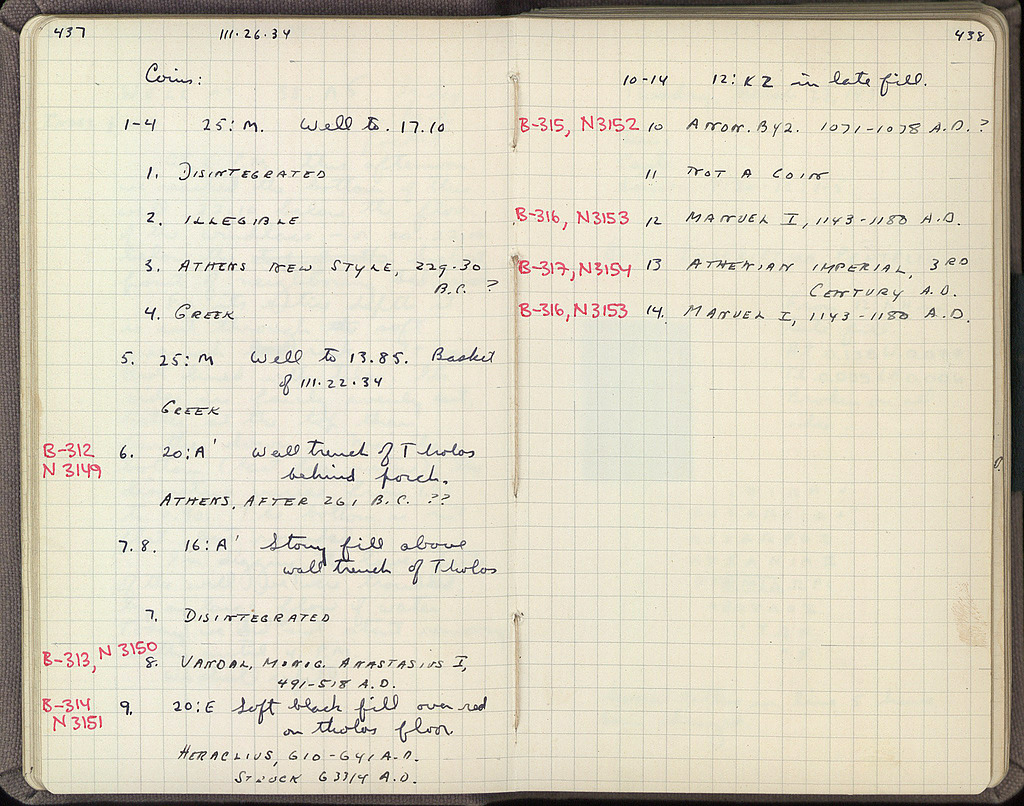 437 III·26·34
Coins:
1-4 25:M. Well to. 17.10
1. DISINTEGRATED
2. ILLEGIBLE
3. ATHENS NEW STYLE, 229-30
B.C. ?
4. GREEK
5. 25:M Well to 13.85. Basket
of III·22·34
GREEK
B-312 6. 20:A' Wall trench of Tholos
N 3149 behind porch.
ATHENS, AFTER 261 B.C. ??
7.8. 16:A' Stony fill above
wall trench of Tholos
7. DISINTEGRATED
B-313, N 3150 8. VANDAL, MONOG. ANASTASIUS I,
491-518 A.D.
B-314 9. 20:E Soft black fill over red
N 3151 on tholos floor
HERACLIUS, 610-641 A.D.
STRUCK 633/4 A.D.
438
10-14 12:KZ in late fill.
B-315, N3152 10 ANON. BYZ. 1071-1078 A.D. ?
11 NOT A COIN
B-316, N3153 12 MANUEL I, 1143-1180 A.D.
B-317, N3154 13 ATHENIAN IMPERIAL, 3RD
CENTURY A.D.
B-316, N3153 14. MANUEL I, 1143-1180 A.D.